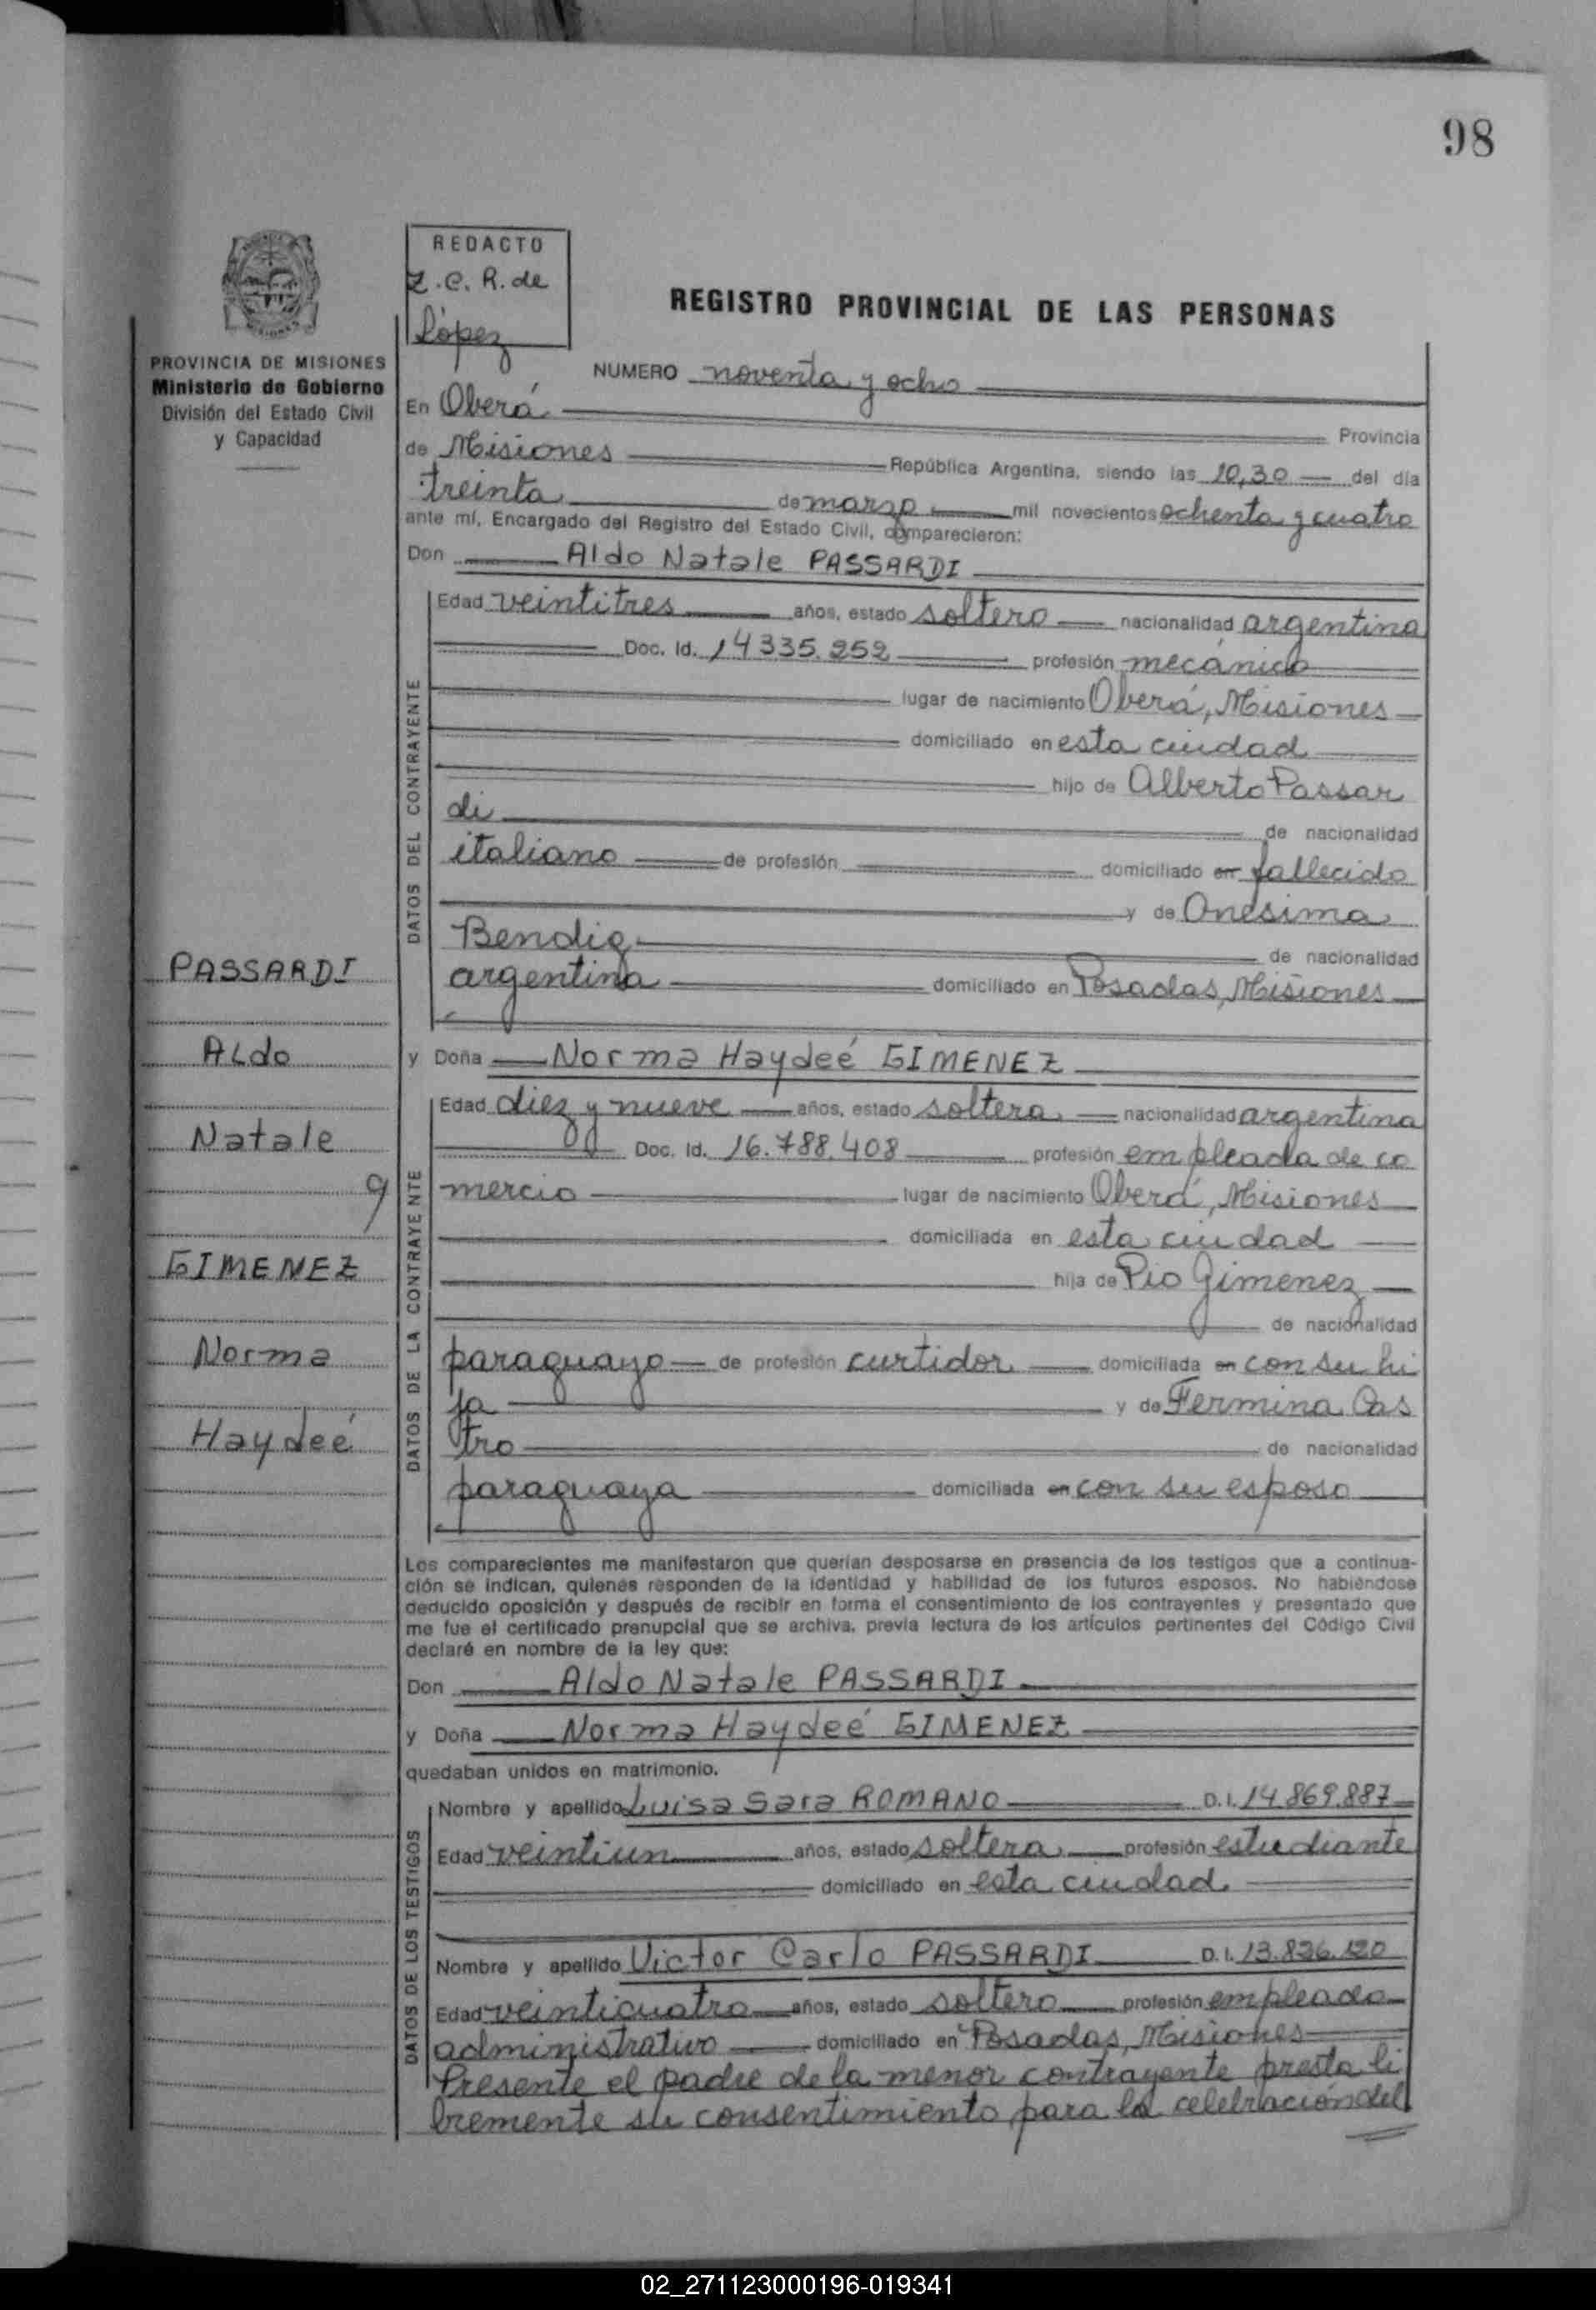 98
REDACTO
Z.C.R. de
López
REGISTRO PROVINCIAL DE LAS PERSONAS
PROVINCIA DE MISIONES
Ministerio de Gobierno
División del Estado Civil
y Capacidad
NUMERO noventa y ocho
En Oberá Provincia
de Misiones República Argentina, siendo las 10,30 del día
treinta de marzo mil novecientos ochenta y cuatro
ante mí, Encargado del Registro del Estado Civil, comparecieron:
Don Aldo Natale PASSARDI
DATOS DEL CONTRAYENTE
Edad veintitres años, estado soltero nacionalidad argentina
Doc. Id. 14335.252 profesión mecánico
lugar de nacimiento Oberá, Misiones
domiciliado en esta ciudad
hijo de Alberto Passar
di de nacionalidad
italiano de profesión domiciliado en fallecido
y de Onesima
Bendig de nacionalidad
argentina domiciliado en Posadas, Misiones
PASSARDI
Aldo
Natale
y
GIMENEZ
Norma
Haydeé
y Doña Norma Haydeé GIMENEZ
DATOS DE LA CONTRAYENTE
Edad diez y nueve años, estado soltera nacionalidad argentina
Doc. Id. 16.788.408 profesión empleada de co
mercio lugar de nacimiento Oberá, Misiones
domiciliada en esta ciudad
hija de Pio Gimenez
de nacionalidad
paraguayo de profesión curtidor domiciliada en con su hi
ja y de Fermina Cas
tro de nacionalidad
paraguaya domiciliada en con su esposo
Los comparecientes me manifestaron que querían desposarse en presencia de los testigos que a continua-
ción se indican, quienes responden de la identidad y habilidad de los futuros esposos. No habiéndose
deducido oposición y después de recibir en forma el consentimiento de los contrayentes y presentado que
me fue el certificado prenupcial que se archiva, previa lectura de los artículos pertinentes del Código Civil
declaré en nombre de la ley que:
Don Aldo Natale PASSARDI
y Doña Norma Haydeé GIMENEZ
quedaban unidos en matrimonio.
DATOS DE LOS TESTIGOS
Nombre y apellido Luisa Sara ROMANO D.I. 14.869.887
Edad veintiun años, estado soltera profesión estudiante
domiciliado en esta ciudad
Nombre y apellido Victor Carlo PASSARDI D.I. 13.826.120
Edad veinticuatro años, estado soltero profesión empleado
administrativo domiciliado en Posadas, Misiones
Presente el padre de la menor contrayente presta li
bremente su consentimiento para la celebración del
02_271123000196-019341